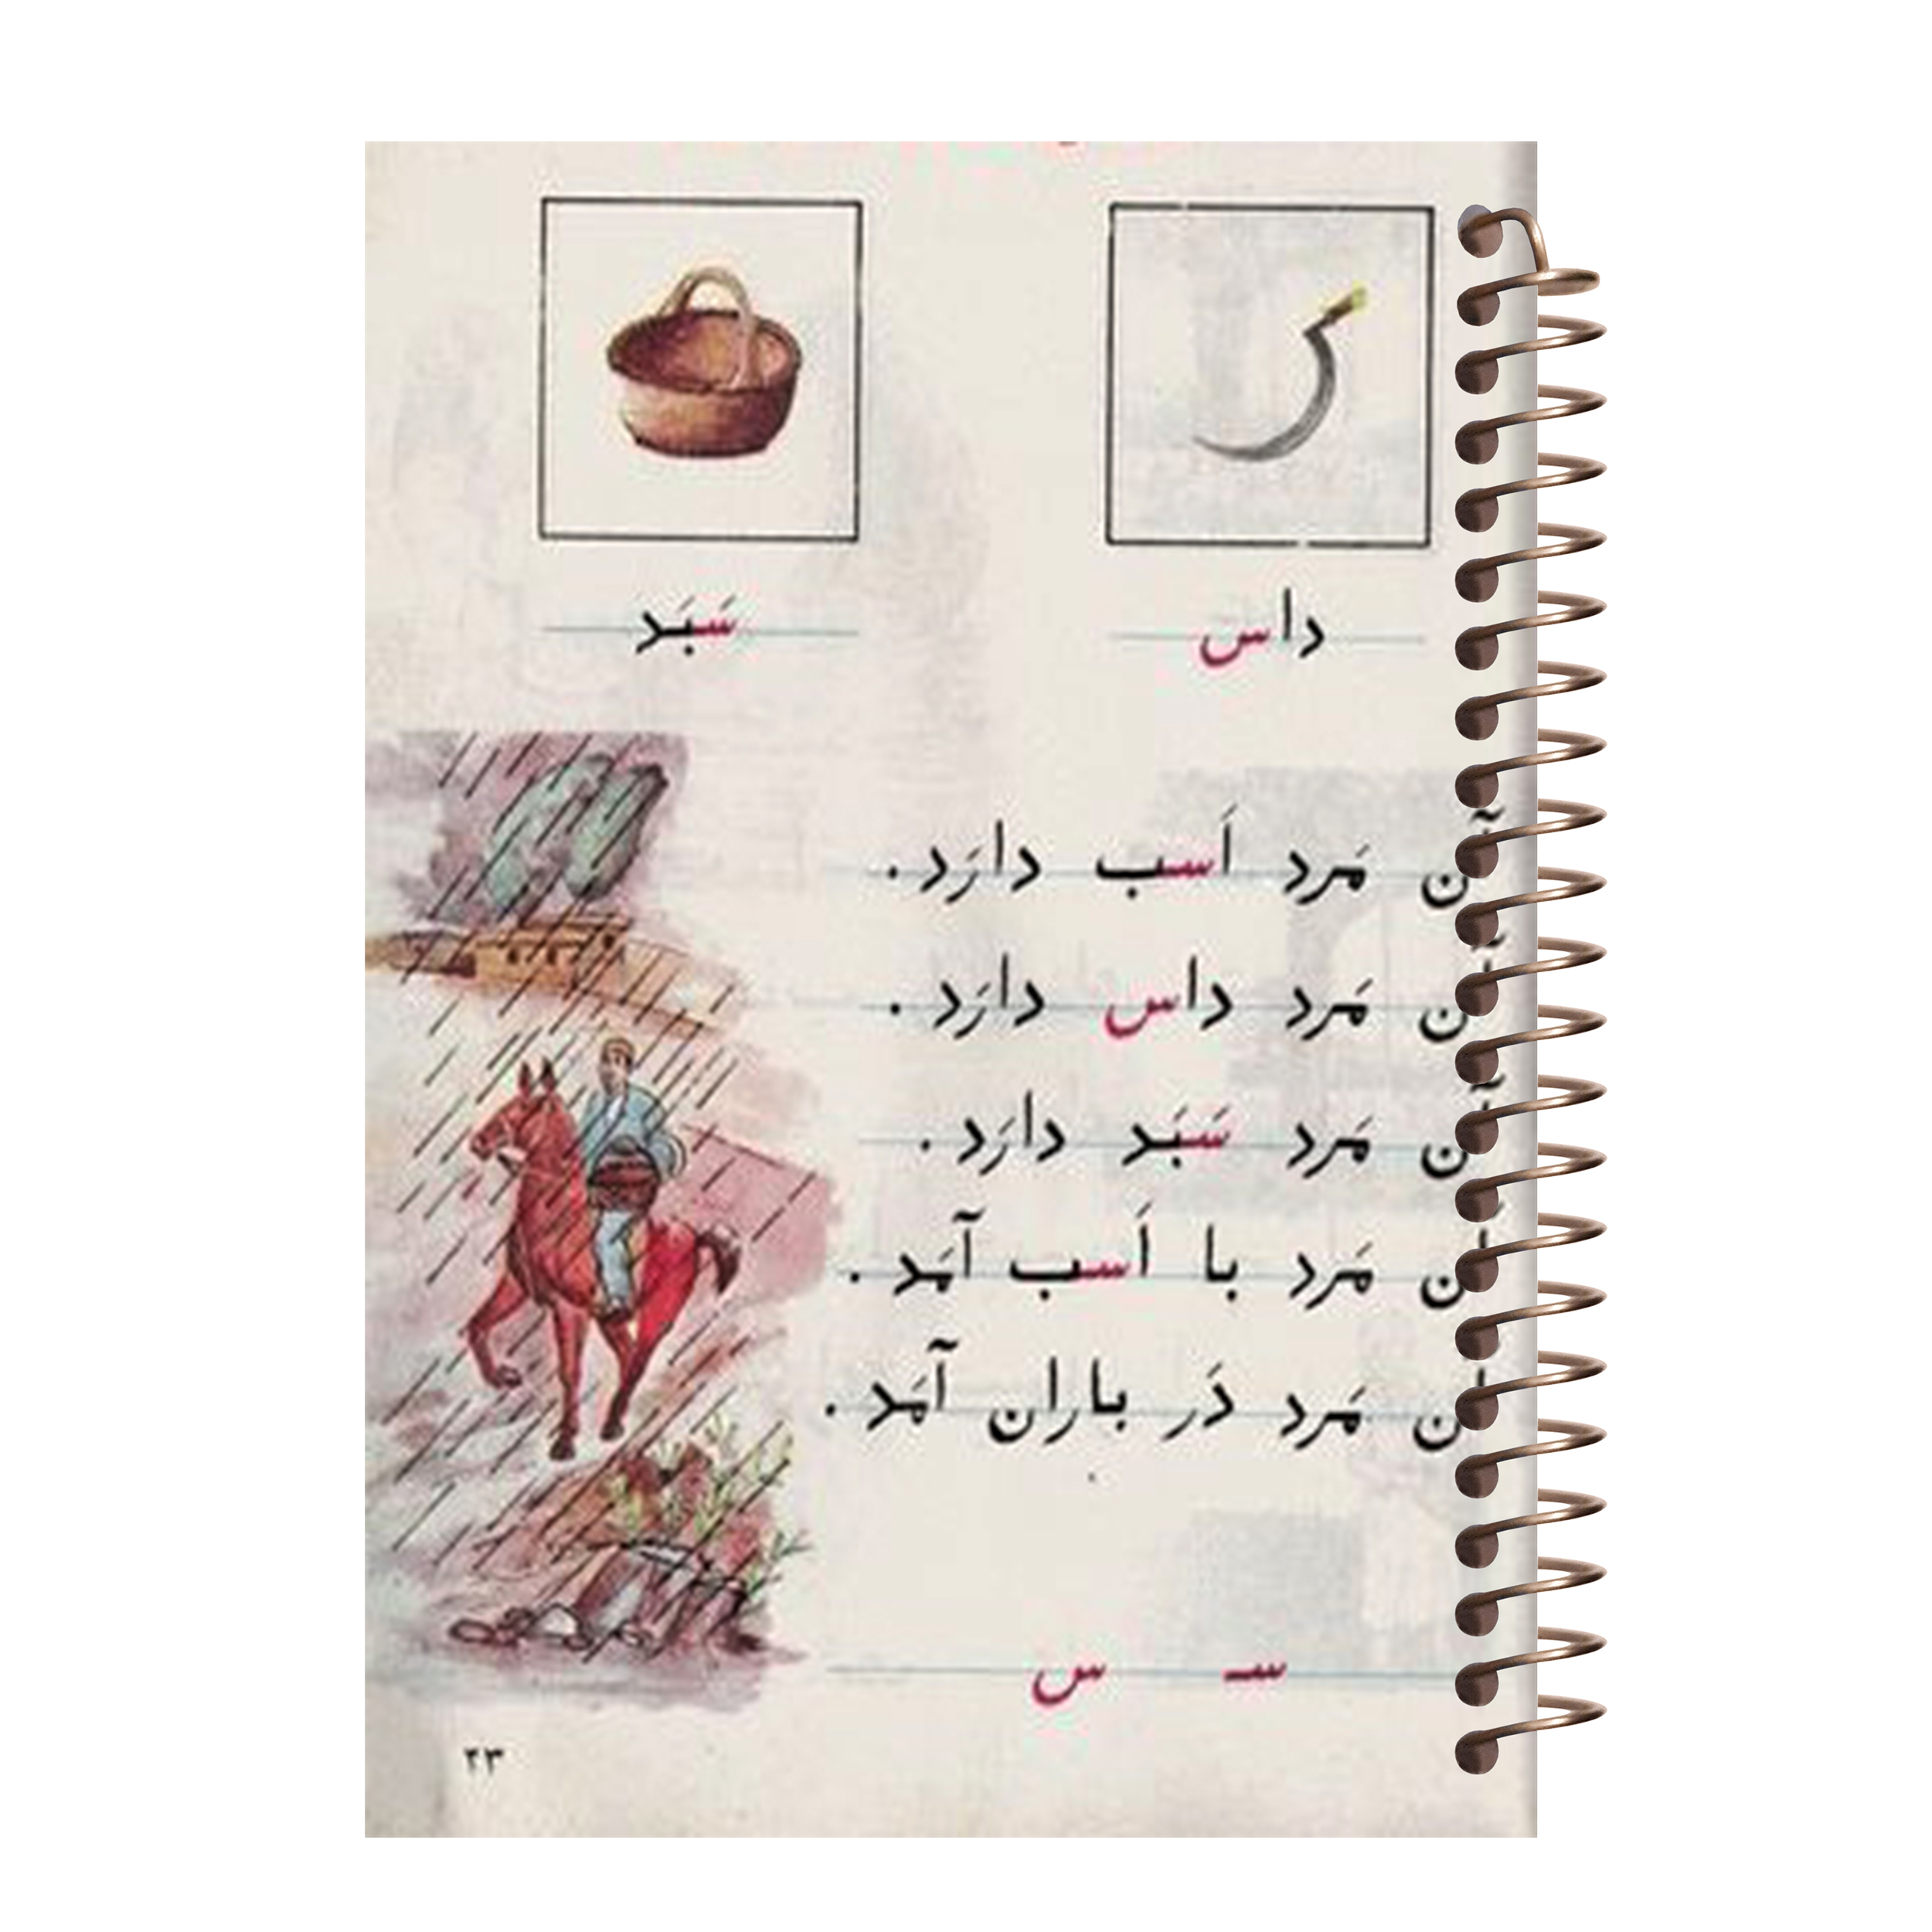 داس سَبَد
آن مَرد اَسب دارَد.
آن مَرد داس دارَد.
آن مَرد سَبَد دارَد.
آن مَرد با اَسب آمَد.
آن مَرد دَر باران آمَد.
سـ س
۲۳